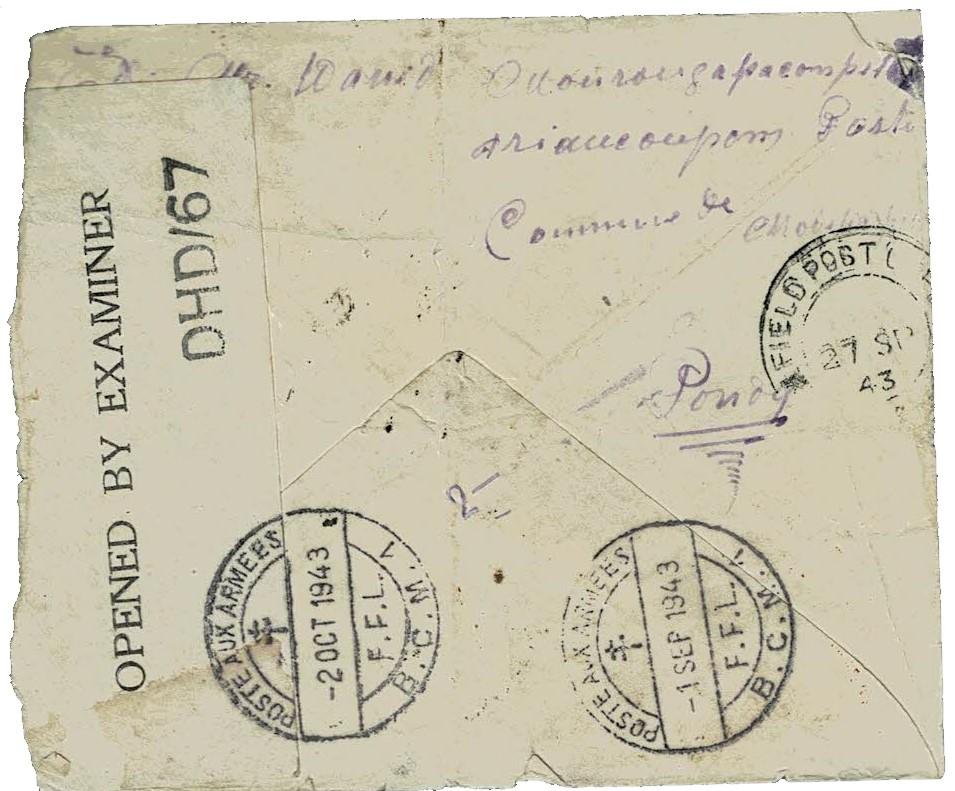 Mr. David
ariancoupom Poste
Commune de
Pondy
OPENED BY EXAMINER
DHD/67
FIELD POST
27 SP
43
POSTE AUX ARMEES
-2 OCT 1943
F.F.L. 1
B.C.M.
POSTE AUX ARMEES
-1 SEP 1943
F.F.L. 1
B.C.M.